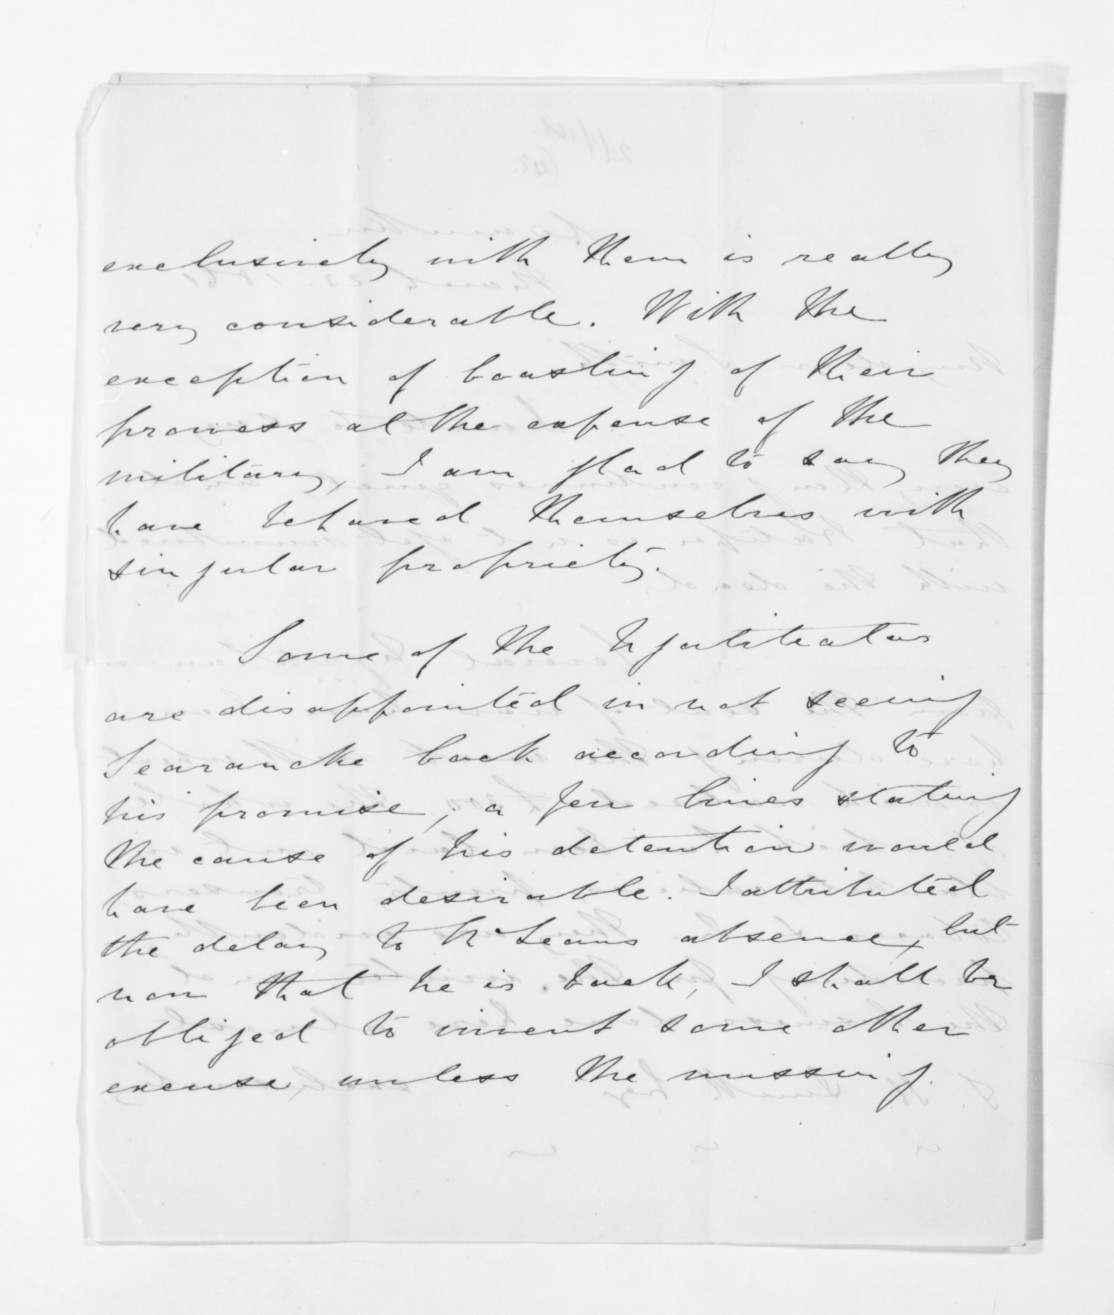 exclusively with them is really
very considerable. With the
exception of boasting of their
prowess at the expense of the
military, I am glad to say they
have behaved themselves with
singular propriety.
Some of the Ngatiteata
are disappointed in not seeing
Searancke back according to
his promise, a few lines stating
the cause of his detention would
have been desirable. I attributed
the delay to McLeans absence, but
now that he is back, I shall be
obliged to invent some other
excuse unless the missing